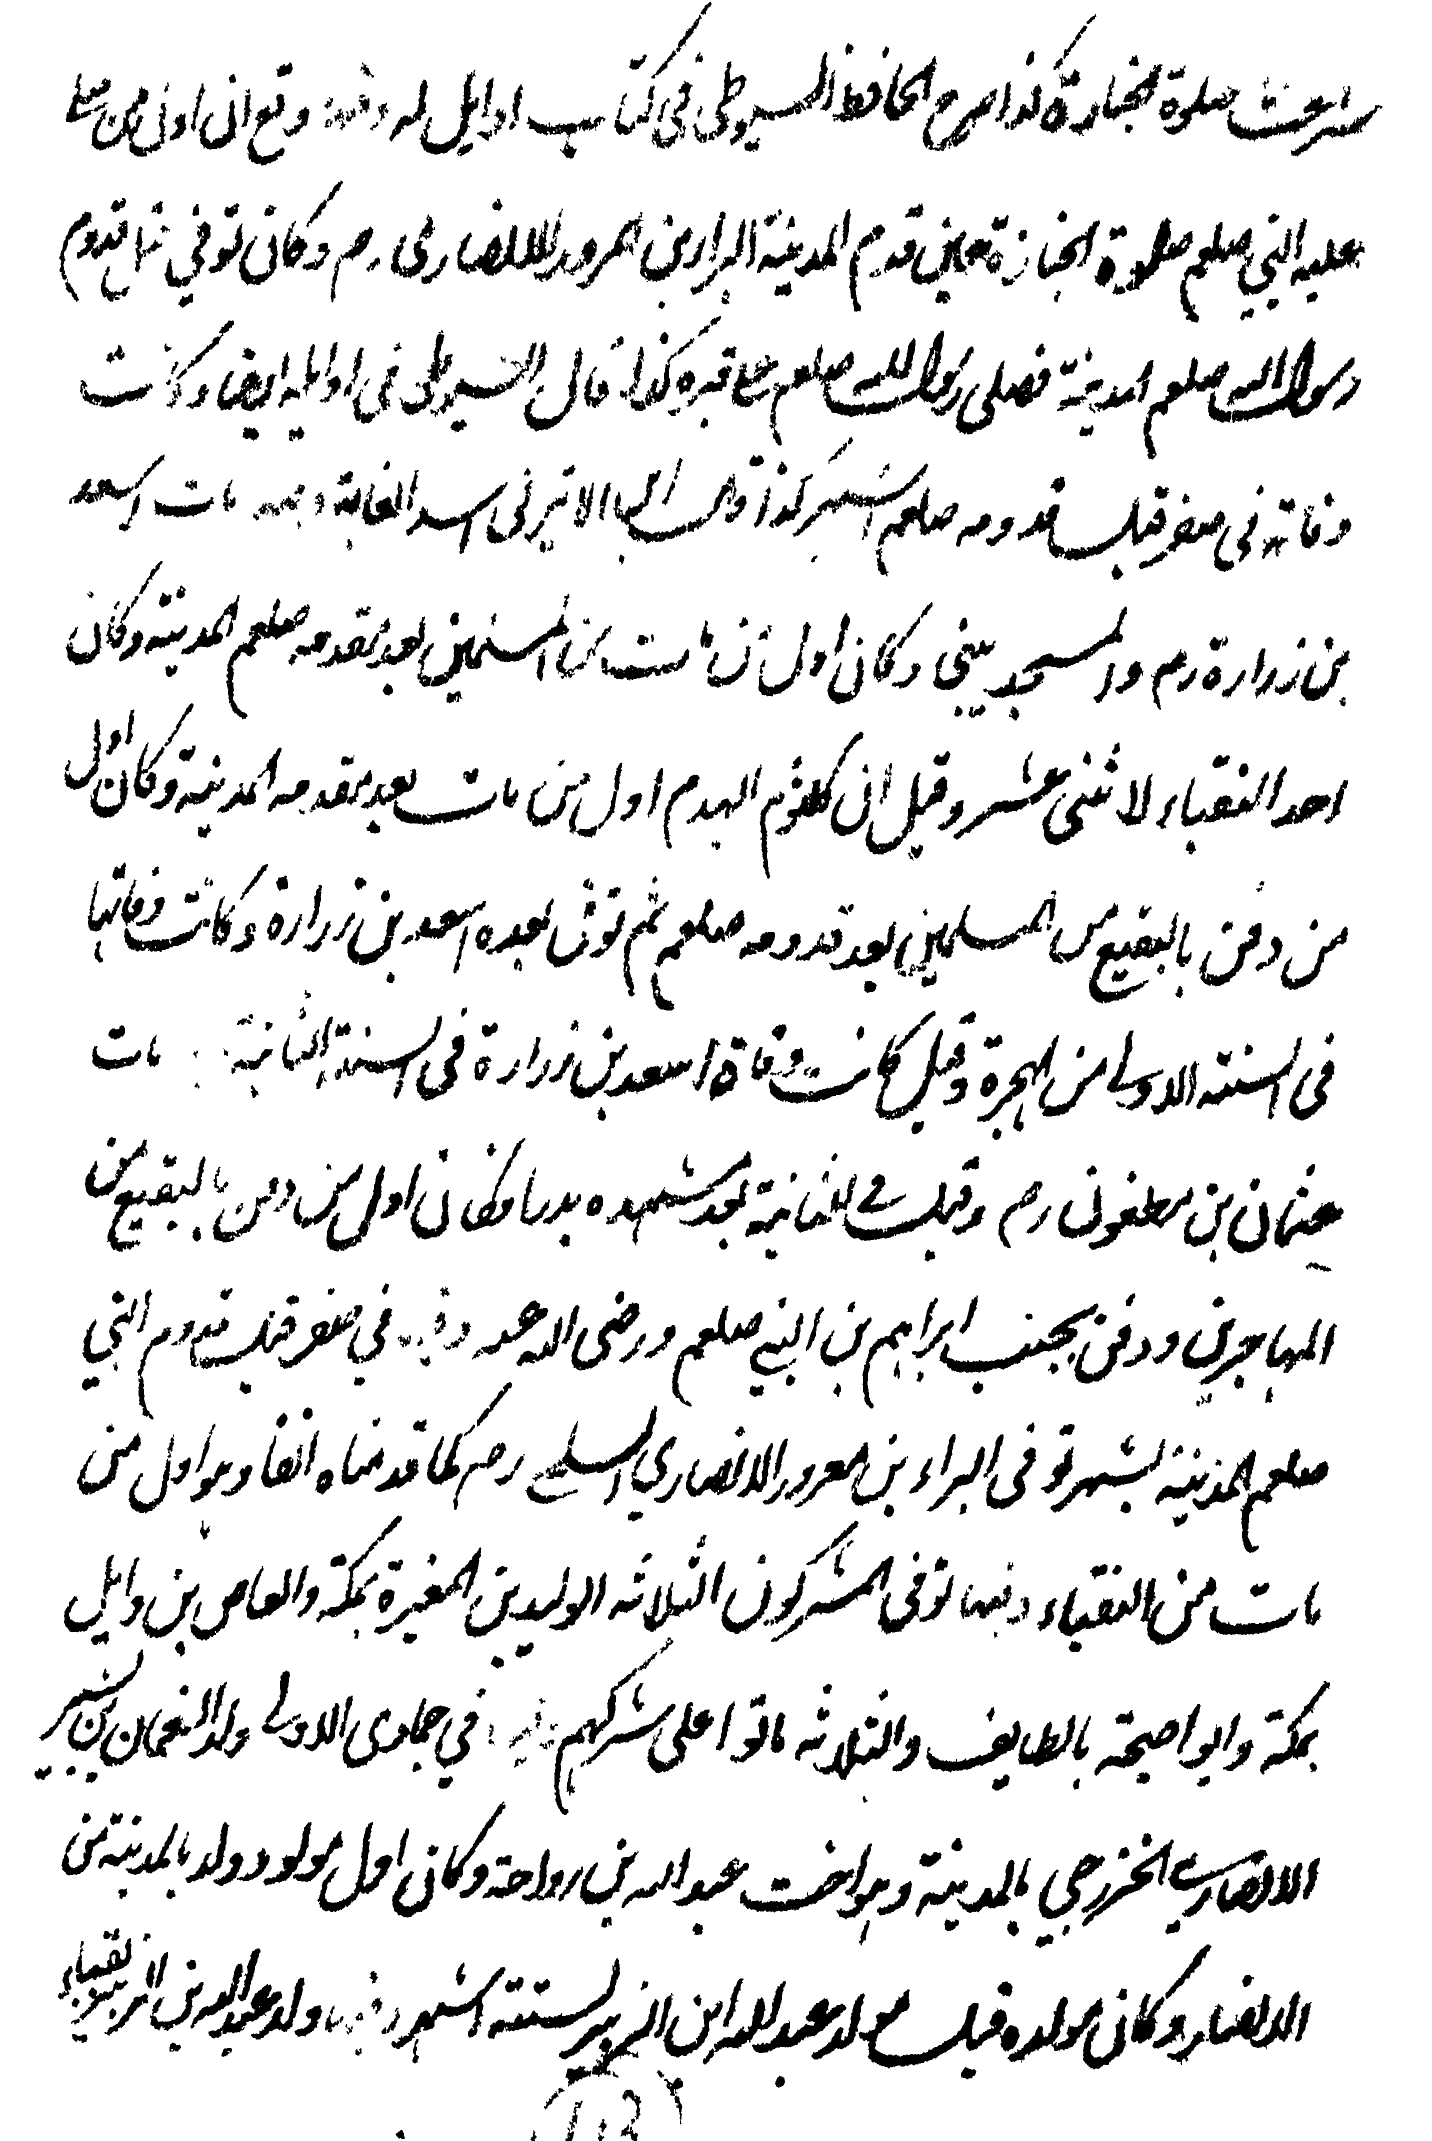 شرعت صلوة الجنازة كذا صرح الحافظ السيوطى فى كتاب اوايل له وفيه وقع ان اول من صلى
عليه النبي صلعم صلوة الجنازة حين قدم المدينة البرا بن المعرور الانصارى رم وكان توفي قبل قدوم
رسول الله صلعم المدينة فصلى رسول الله صلعم على قبره كذا قال السيوطى فى اوايله ايضا وكانت
وفاته فى صفر قبل قدومه صلعم بشهر كذا قال ابن الاثير فى اسد الغابة وفيها مات اسعد
بن زرارة رم والمسجد يبنى وكان اول من مات من المسلمين بعد مقدمه صلعم المدينة وكان
احد النقباء الاثنى عشر وقيل ان كلثوم الهدم اول من مات بعد مقدمه المدينة وكان اول
من دفن بالبقيع من المسلمين بعد قدومه صلعم ثم توفى بعده اسعد بن زرارة وكانت وفاتها
فى السنة الاولى من الهجرة وقيل كانت وفاة اسعد بن زرارة فى السنة الثانية مات
عثمان بن مظعون رم وقيل فى الثانية بعد شهوده بدرا وكان اول من دفن بالبقيع من
المهاجرين ودفن بجنب ابراهيم بن النبي صلعم ورضى الله عنه وفيها في صفر قبل قدوم النبي
صلعم المدينة بشهر توفى البراء بن معرور الانصاري السلمى رم كما قدمناه انفا وهو اول من
مات من النقباء وفيها توفى المشركون الثلاثه الوليد بن المغيرة بمكة والعاص بن وايل
بمكة وابو اصيحة بالطايف والثلاثه ماتوا على شركهم وفيها في جمادى الاولى ولد النعمان بن بشير
الانصارى الخزرجي بالمدينة وهو اخت عبد الله بن رواحة وكان اول مولود ولد بالمدينة من
الانصار وكان مولده قبل مولد عبد الله ابن الزبير لستة اشهر وفيها ولد عبد الله بن الزبير بقباء